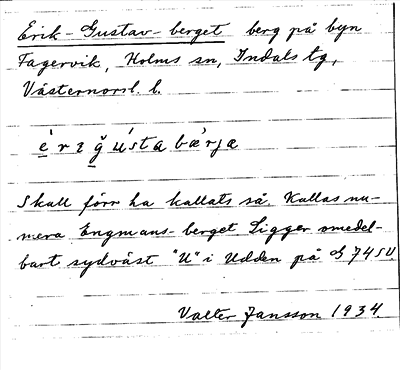 Erik-Gustav-berget berg på byn
Fagervik, Holms sn, Indals tg,
Västernorrl. l.
Skall förr ha kallats så. Kallas nu-
mera Engmans-berget. Ligger omedel-
bart sydväst "U" i Udden på GJ 74 SV.
Valter Jansson 1934.